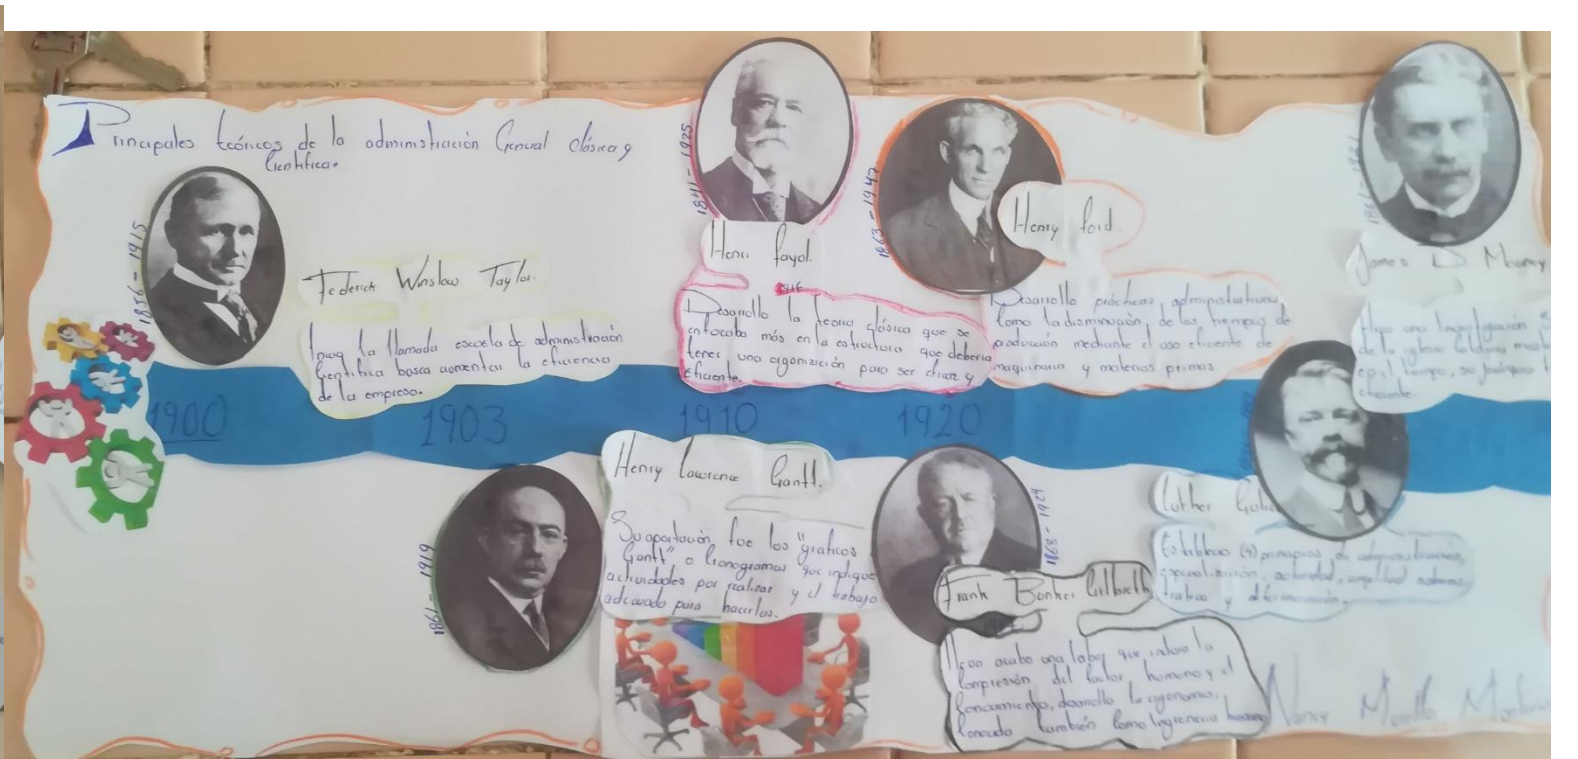 Principales teóricos de la administración General clásica y
Científica.
1856 - 1915
Federick Winslow Taylor.
la llamada escuela de administración
Científica busca aumentar la eficiencia
de la empresa.
1841 - 1925
Henri fayol.
1916
Desarrollo la teoria clásica que se
enfocaba más en la estructura que deberia
tener una organización para ser eficaz y
eficiente.
1863 - 1947
Henry ford.
Desarrollo prácticas administrativas
como la disminución de los tiempos de
producción mediante el uso eficiente de
maquinaria y materias primas
James D Mooney
Hizo una Investigación
de la iglesia
en el tiempo, su jerarquia
eficiente.
1900
1903
1910
1920
1861 - 1919
Henry Lawrence Gantt.
Su aportación fue los "graficos
Gantt" o Cronogramas que indique
actividades por realizar y el trabajo
adecuado para hacerlas.
1868 - 1924
Frank Bunker Gilbreth
acabo una labor que incluia la
compresión del factor humano y el
desarrollo la ergonomia,
también como Ingenieria humana
Luther
Establecio (4) principios de administración,
especialización, autoridad, amplitud adminis
trativa y
Nancy Murillo